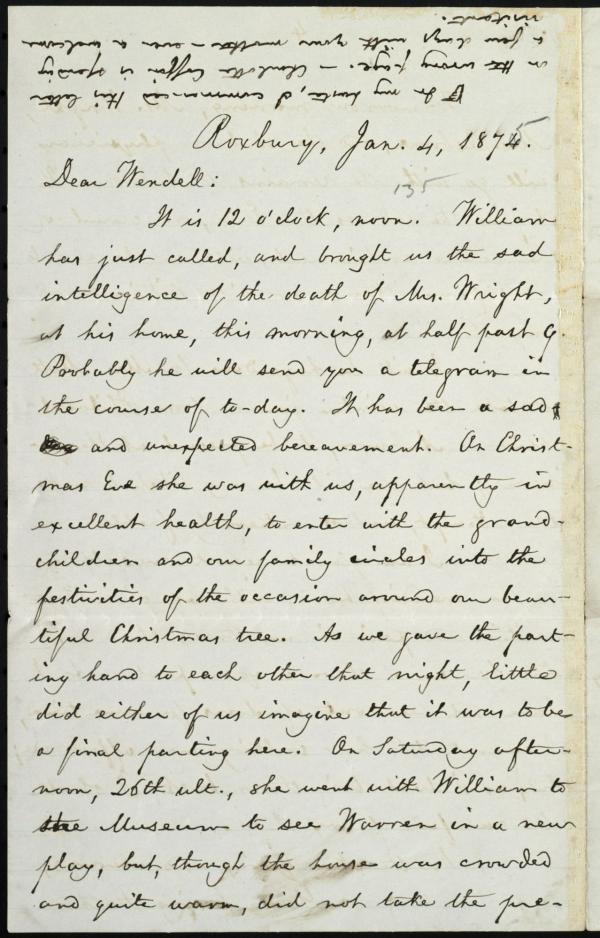 ☞ In my haste, I commenced this letter
on the wrong page. — Charlotte Coffin is spending
a few days with your mother — ever a welcome
visitant.
Roxbury, Jan. 4, 1875.
135
Dear Wendell:
It is 12 o'clock, noon. William
has just called, and brought us the sad
intelligence of the death of Mrs. Wright,
at his home, this morning, at half past 9.
Probably he will send you a telegram in
the course of to-day. It has been a sad
and unexpected bereavement. On Christ-
mas Eve she was with us, apparently in
excellent health, to enter with the grand-
children and our family circles into the
festivities of the occasion around our beau-
tiful Christmas tree. As we gave the part-
ing hand to each other that night, little
did either of us imagine that it was to be
a final parting here. On Saturday after-
noon, 26th ult., she went with William to
the Museum to see Warren in a new
play, but, though the house was crowded
and quite warm, did not take the pre-